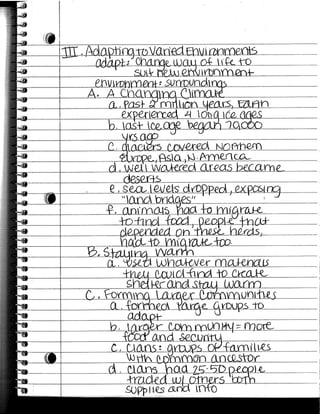 III. Adapting to Varied Environments
adapt: change way of life to
suit new environment
environment: surroundings
A. A Changing Climate
a. Past 2 million years, Earth
experienced 4 long ice ages
b. last ice age began 70,000
yrs ago
c. glaciers covered Northern
Europe, Asia, N. America
d. well watered areas became
deserts
e. sea levels dropped, exposing
"land bridges"
f. animals had to migrate
to find food, people that
depended on these herds,
had to migrate too
B. Staying Warm
a. used whatever materials
they could find to create
shelter and stay warm
C. Forming Larger Communities
a. formed large groups to
adapt
b. larger community = more
food and security
c. Clans: groups of families
with common ancestor
d. clans had 25-50 people
traded w/ others both
supplies and info